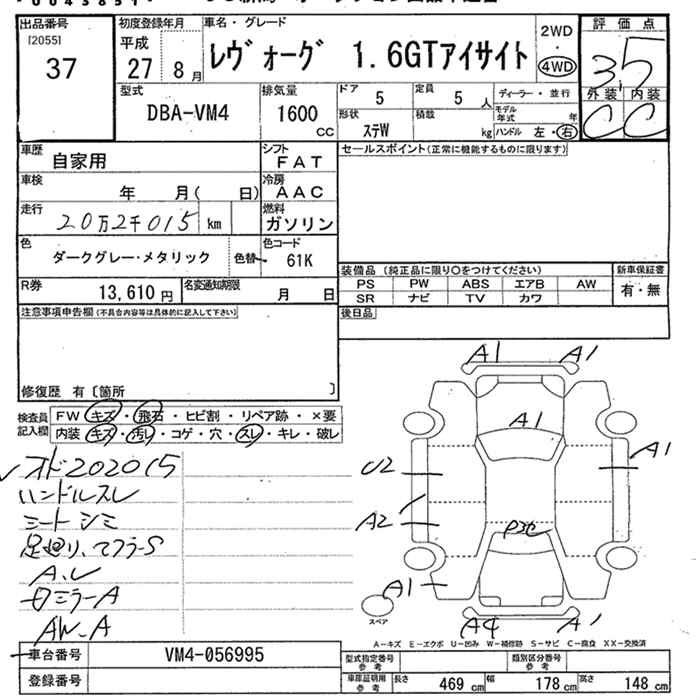 出品番号 初度登録年月 車名・グレード 2WD 評価点
[2055] 平成 レヴォーグ 1.6GTアイサイト 4WD 3.5
37 27 8月
型式 排気量 ドア 定員 ディーラー・並行 外装 内装
DBA-VM4 1600 cc 5 5人 モデル年式 年 C C
形状 積載
ステW kg ハンドル 左・右
車歴 自家用 シフト FAT セールスポイント(正常に機能するものに限ります)
車検 年 月( 日) 冷房 AAC
走行 20万2千015 km 燃料 ガソリン
色 ダークグレー・メタリック 色替 色コード 61K
装備品(純正品に限り○をつけてください) 新車保証書
R券 13,610円 名変通知期限 月 日 PS PW ABS エアB AW 有・無
SR ナビ TV カワ
注意事項申告欄(不具合内容等は具体的に記入して下さい) 後日品
修復歴 有〔箇所 〕
検査員記入欄 FW キズ・飛石・ヒビ割・リペア跡・×要
内装 キズ・汚レ・コゲ・穴・スレ・キレ・破レ
オド202015
ハンドルスレ
シートシミ
足廻り、マフラーS
A.U
ミラーA
AW-A
A1 A1
A1
U2 A1
A2
A1
A4 A1
スペア
A-キズ E-エクボ U-凹み W-補修跡 S-サビ C-腐食 XX-交換済
車台番号 VM4-056995 型式指定番号 参考 類別区分番号 参考
登録番号 車庫証明用 参考 長さ 469 cm 幅 178 cm 高さ 148 cm